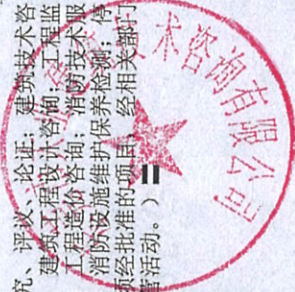 究、评议、论证；建筑技术咨
建筑工程设计咨询；工程监
工程造价咨询；消防技术服
消防设施维护保养检测；停
须经批准的项目，经相关部门
营活动。）
技术咨询有限公司